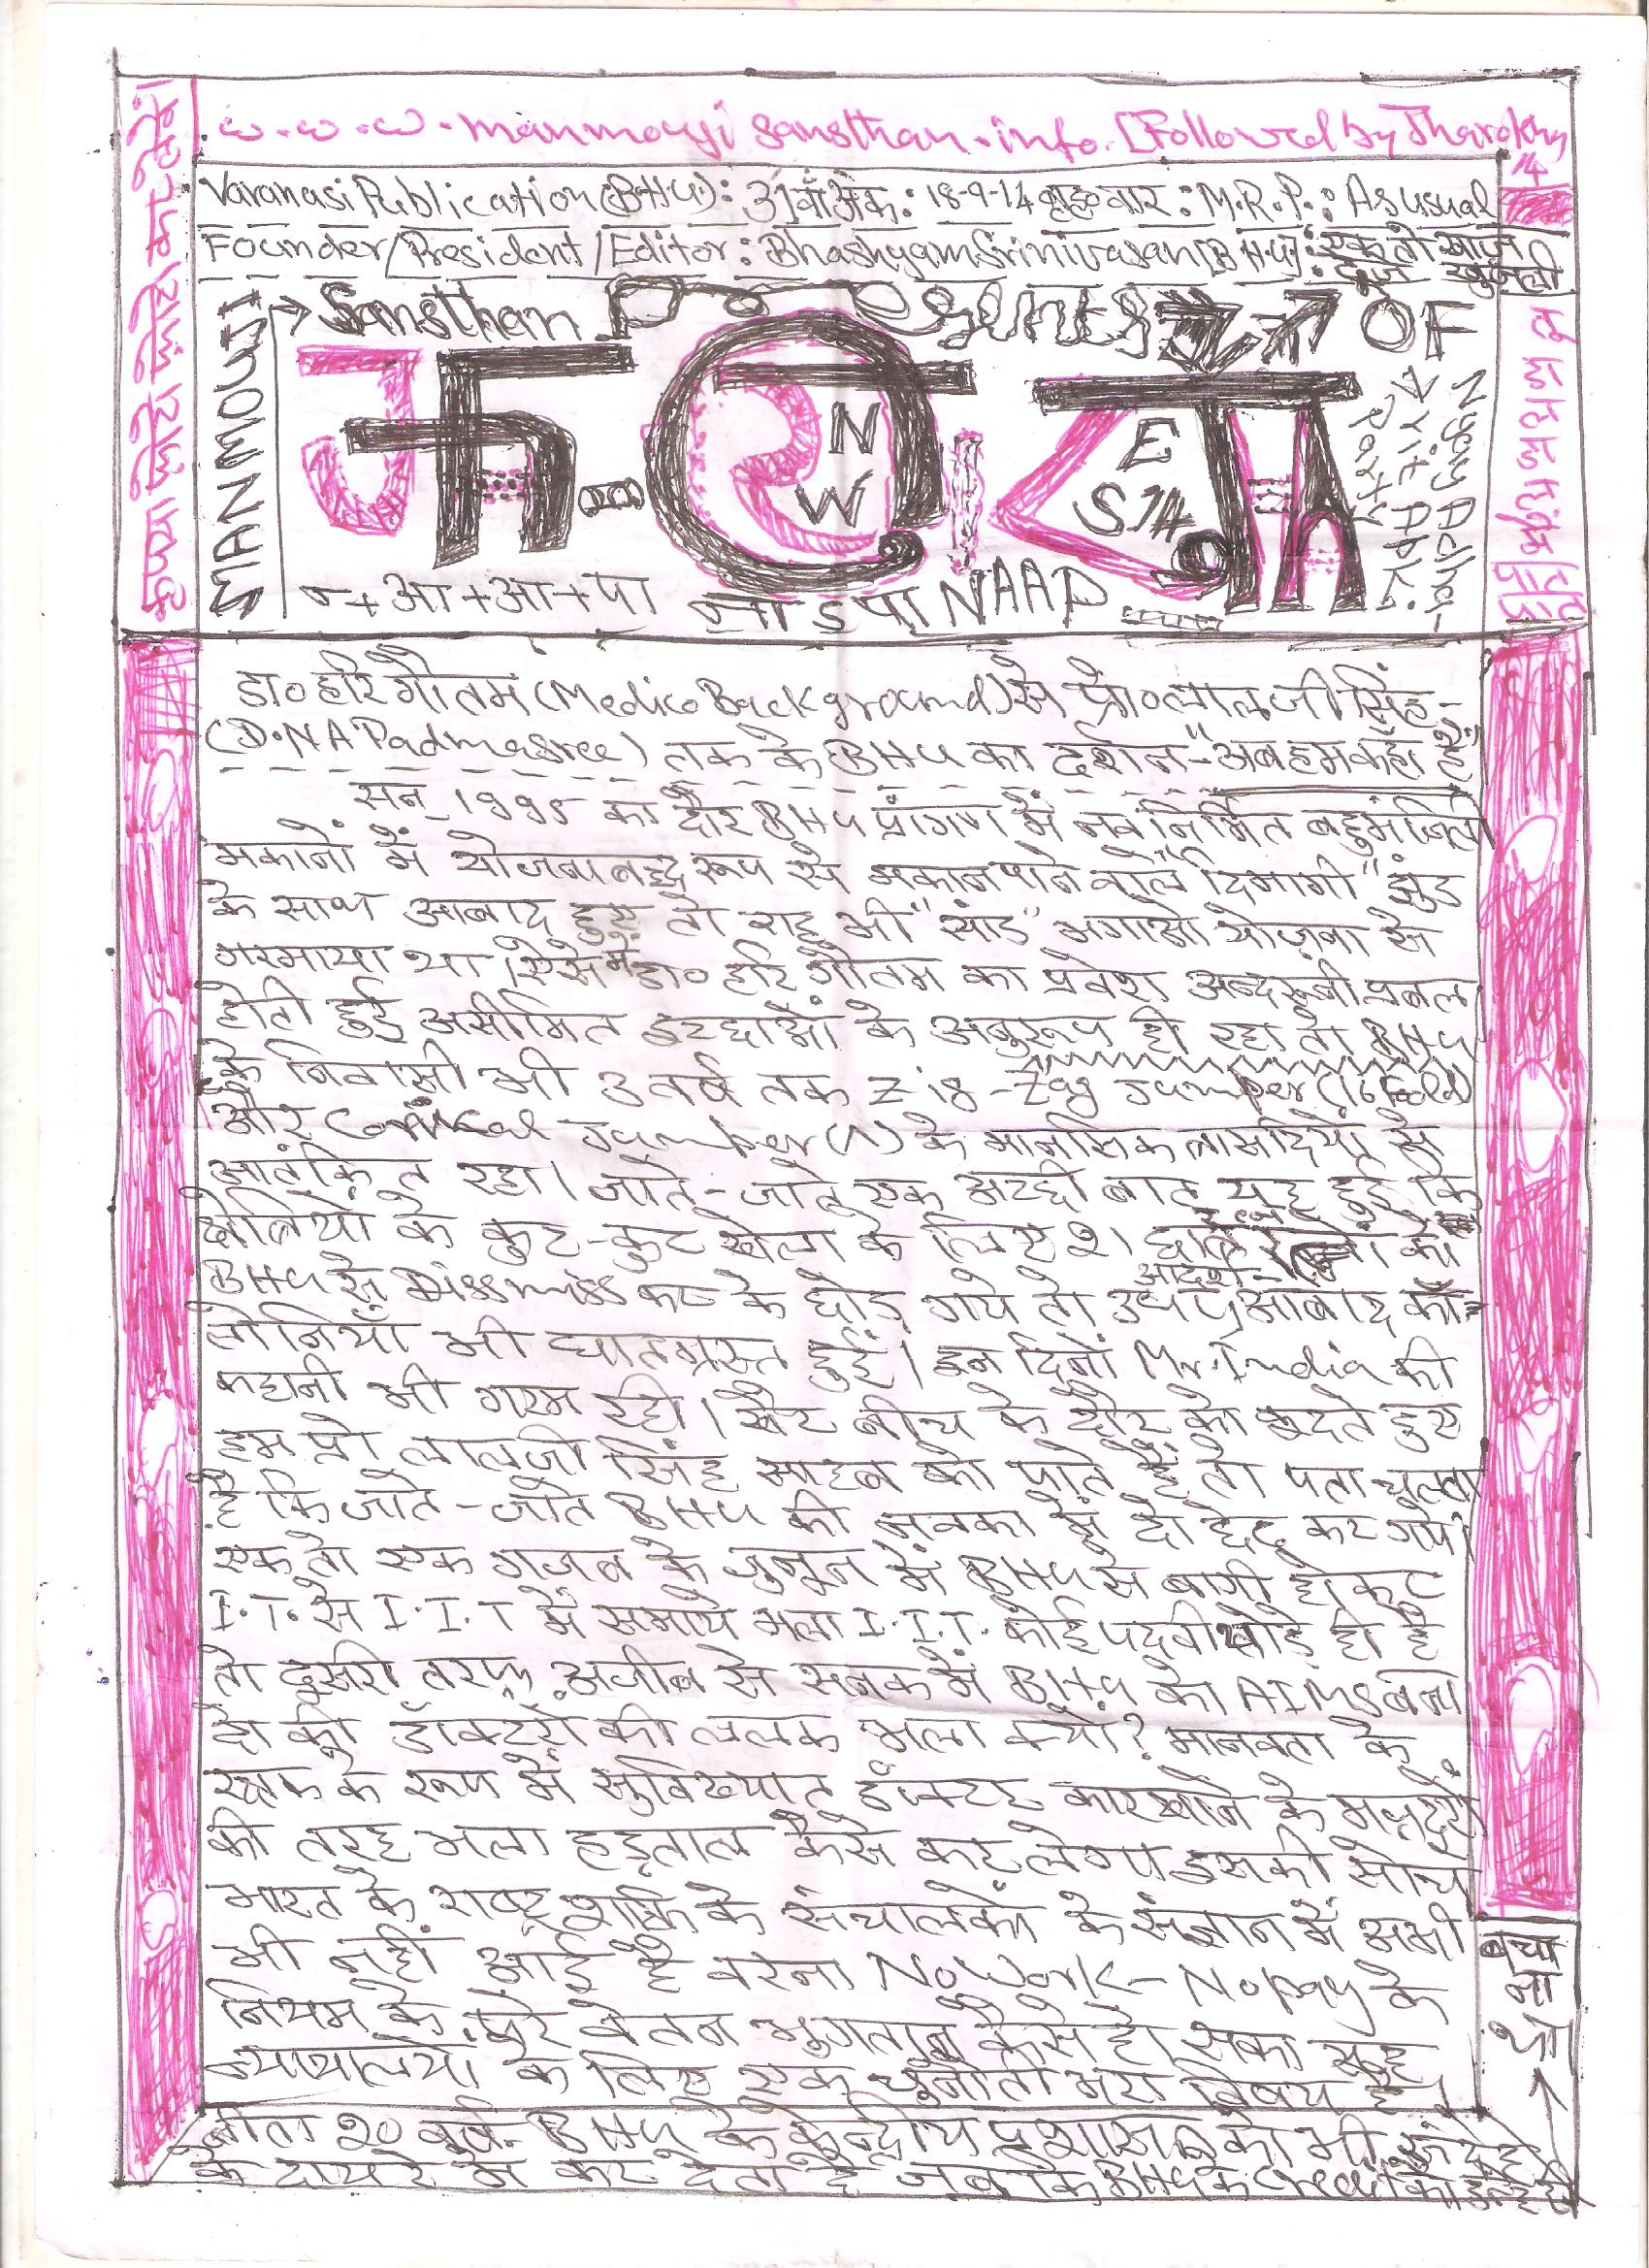 w.w.w.manmouji sansthan.info. [Followed by Jharokha
Varanasi Publication (BHU): 31वाँ अंक: 18-9-14 बृह०वार: M.R.P.: As usual
Founder/President/Editor: Bhashyam Srinivasan [BHU]: एक तो खाज दूजे खुजली
MANMOUJI
Sansthan Presents OF
झरोखा
N E W S 14
Nyay Adhar-
Arit Apki
Party
न्+आ+आ+पा नाऽपा NAAP
डा० हरि गौतम (Medico Background) से प्रो० लालजी सिंह-
(D.N.A Padmasree) तक के BHU का दर्शन-"अब हम कहाँ है"
सन् 1995 का दौर BHU प्रांगण में नव निर्मित बहुमंजिली
मकानों में योजनाबद्ध रूप से मकान पाने वाले "दिमागी" झुंड
के साथ आबाद हुए तो राहू भी "सांड" भगाओ योजना से
गरमाया था। ऐसे में डा० हरि गौतम का प्रवेश अन्दरूनी प्रबल
होती हुई असीमित इच्छाओं के अनुरूप ही रहा तो BHU
के निवासी भी 3 वर्ष तक zig-zag Jumper (16 Feld)
और Conical Jumper (n) के मानसिक त्रासदियों से
आतंकित रहा। जाते-जाते एक अच्छी बात यह हुई कि
के कुट-कुट खेला के लिए 21 को
BHU से Missmiss कर के छोड़ गये तो आबाद कॉ-
लोनियाँ भी घातग्रस्त हुई। इन दिनों Mr. India की
कहानी भी गरम रही। खैर बीच के दौर को कुदते हुए
हम प्रो लालजी सिंह साहब को पाते हैं तो पता चलता
है कि जाते-जाते BHU की नवका में दो छेद कर गये।
एक तो एक गजब के जुनून में BHU से बागी होकर
I.T. से I.I.T में समाये भला I.I.T. कोई पदवी थोड़े ही है
तो दूसरी तरफ अजीब से सनक में BHU को AIMS बना
दो की डॉक्टरों की ललक भला क्यों? मानवता के
रक्षक के रूप में सुविख्यात डॉक्टर कारखाने के मजदूरों
की तरह भला हड़ताल कैसे कर लेगा इसकी सोच
भारत के राष्ट्र शक्ति के संचालकों के संज्ञान में अभी
भी नहीं आई है वरना No Work-No pay के
नियम के परे वेतन भुगतान कैसे हो सका यह
न्यायालयों के लिए एक चुनौती भरा विषय है।
बीता 20 वर्ष BHU के केन्द्रीय प्रशासन को भी संदेह
के दायरे में कर देता है जबकि BHU के
बचा
लो